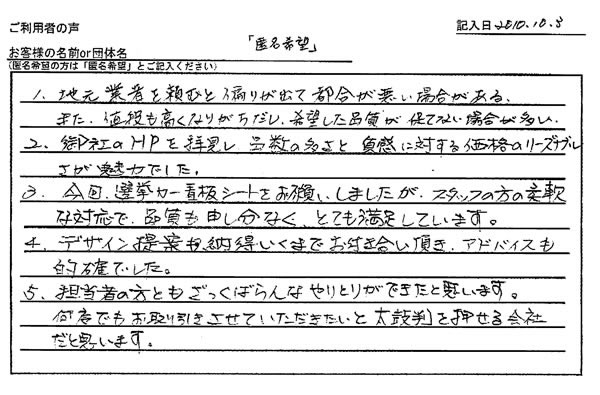 ご利用者の声
記入日 2010.10.3
お客様の名前or団体名
「匿名希望」
(匿名希望の方は「匿名希望」とご記入ください)
1. 地元業者を頼むと偏りが出て都合が悪い場合がある、
また、値段も高くなりがちだし、希望した品質が保てない場合が多い。
2. 御社のHPを拝見し 品数の多さと 質感に対する価格のリーズナブル
さが魅力でした。
3. 今回、選挙カー看板シートをお願いしましたが、スタッフの方の柔軟
な対応で、品質も申し分なく、とても満足しています。
4. デザイン提案も納得いくまでお付き合い頂き、アドバイスも
的確でした。
5. 担当者の方ともざっくばらんなやりとりができたと思います。
何度でもお取り引きさせていただきたいと太鼓判を押せる会社
だと思います。